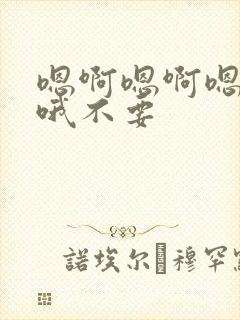 嗯啊嗯啊嗯
哦不要
諾埃尔穆罕